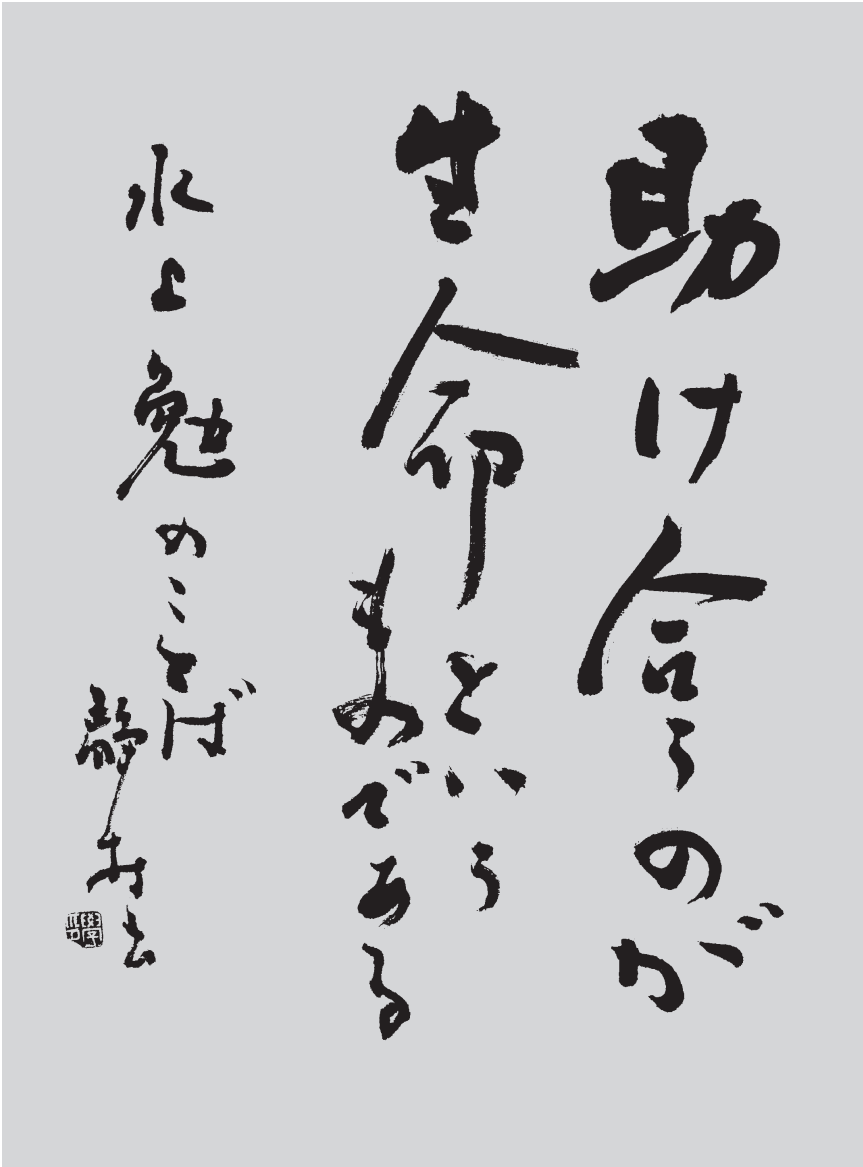 助け合うのが
生命という
ものである
水上勉のことば